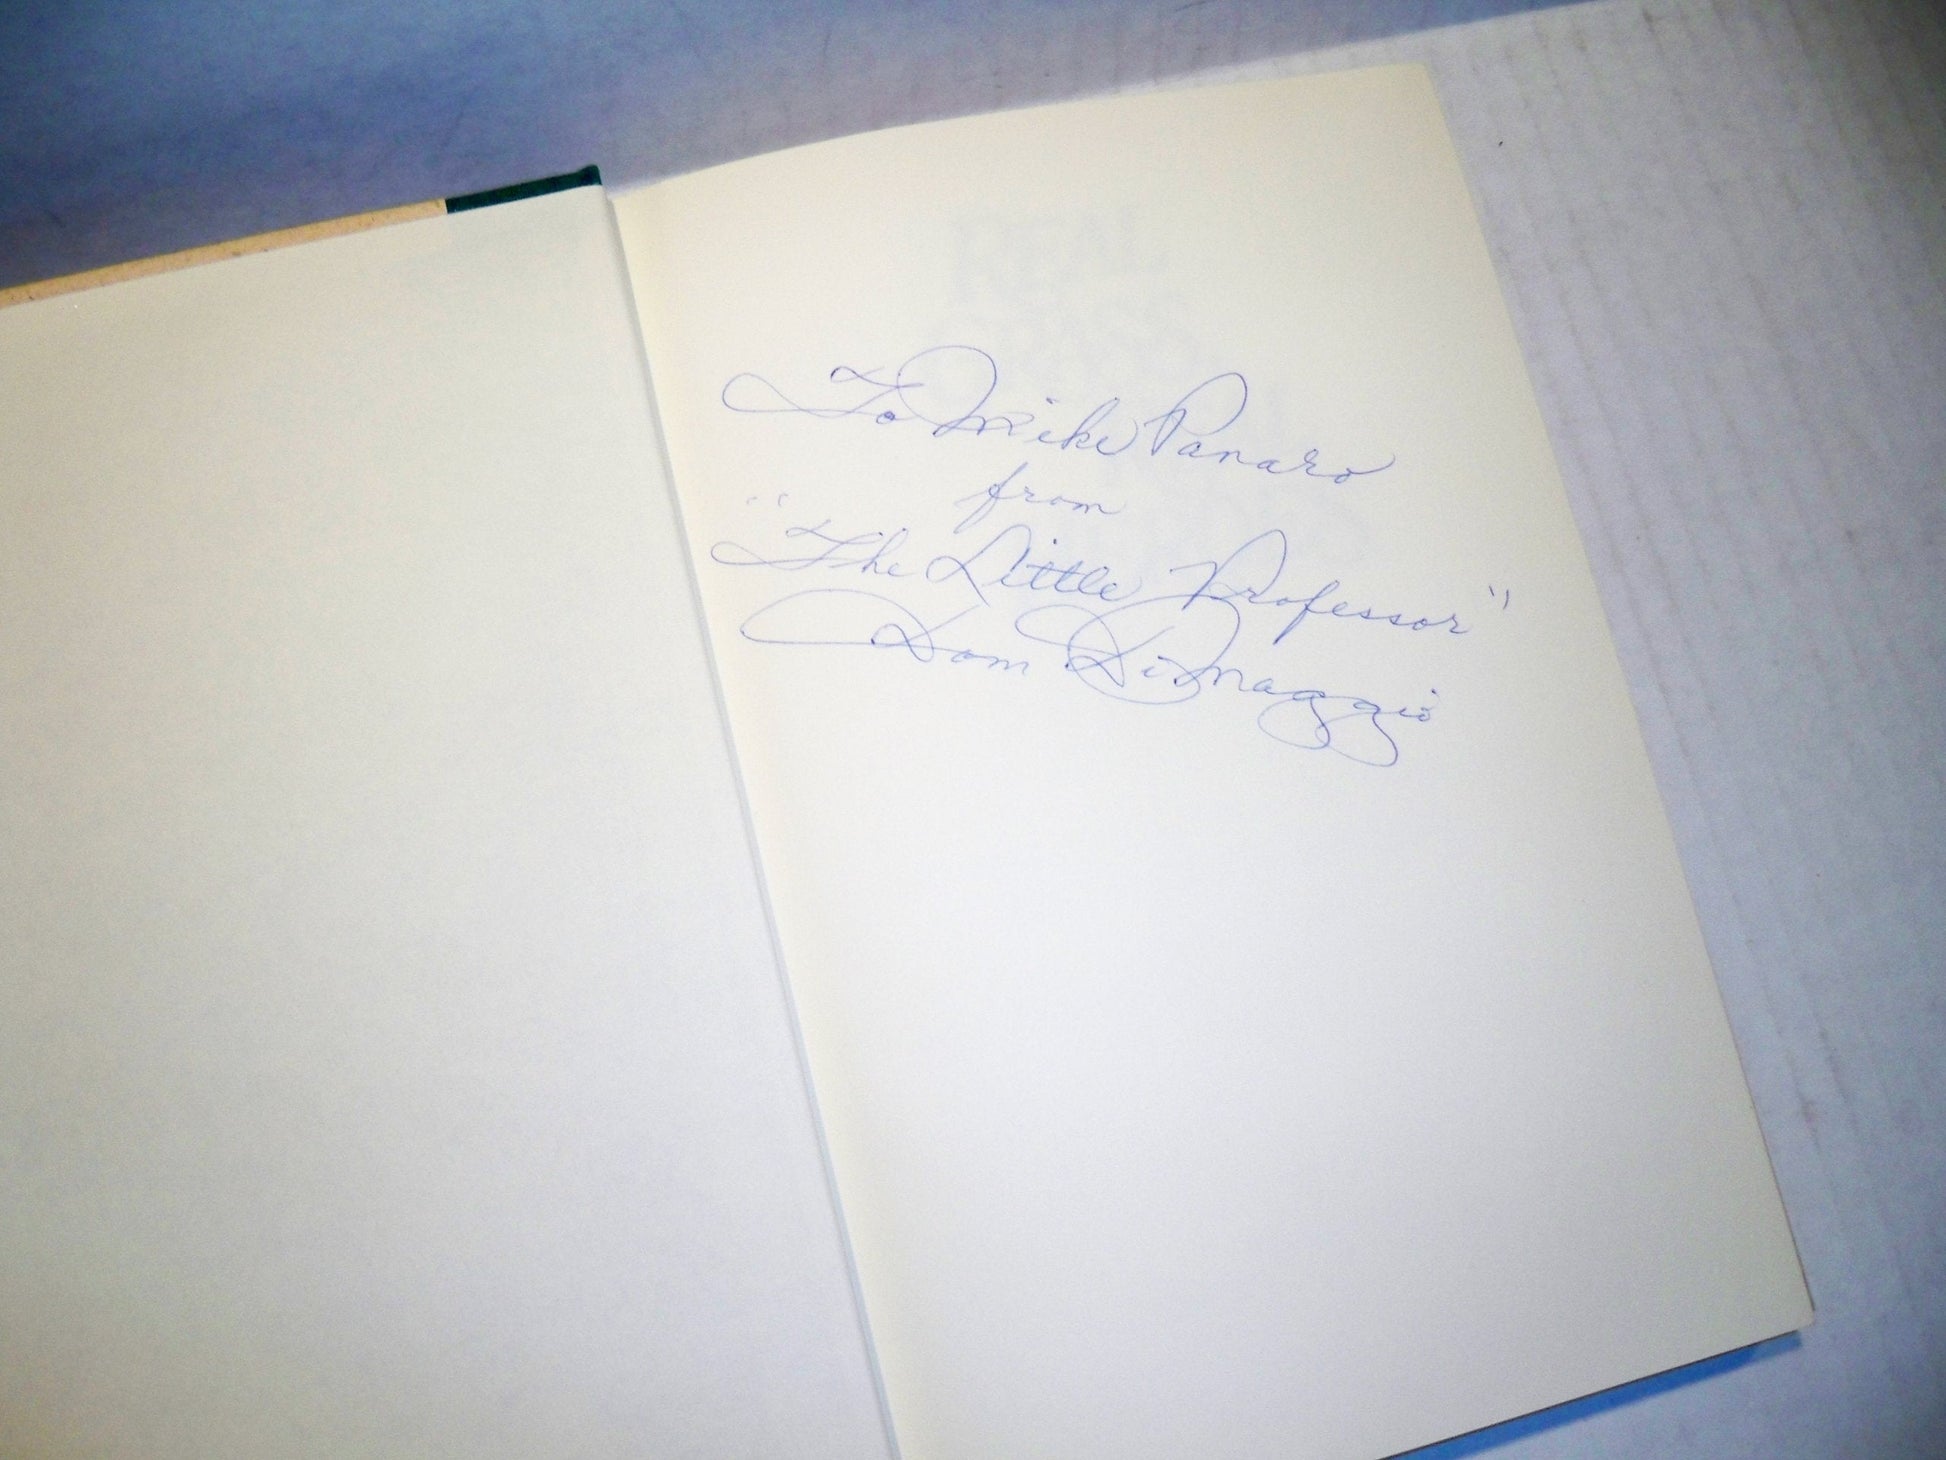 To Mike Panaro
from
"The Little Professor"
Dom DiMaggio